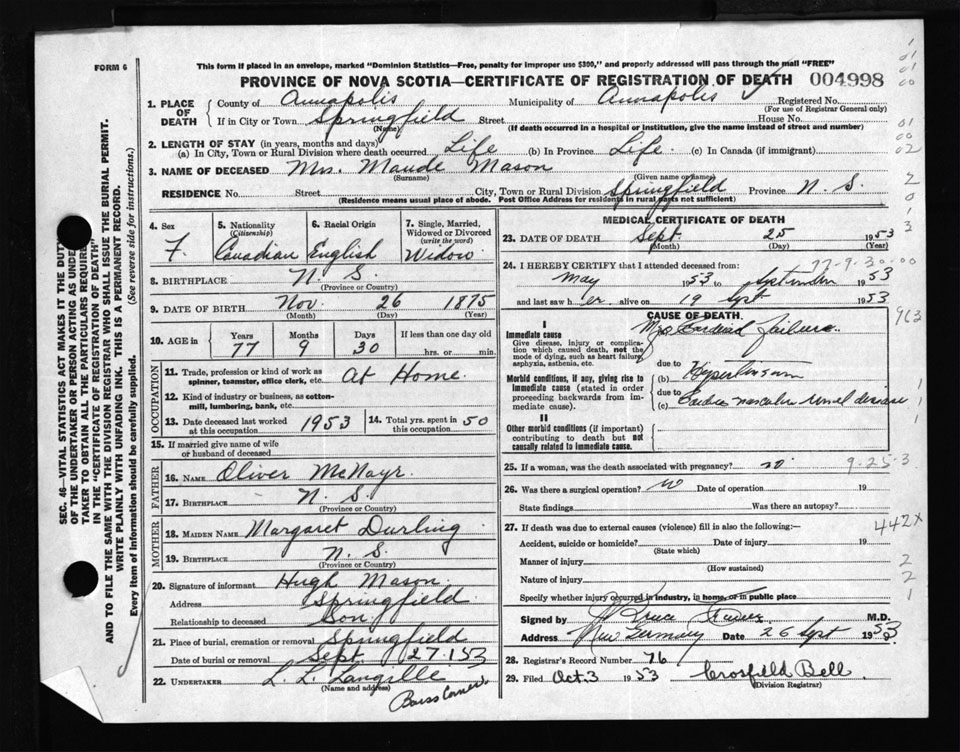 This form if placed in an envelope, marked "Dominion Statistics—Free, penalty for improper use $300," and properly addressed will pass through the mail "FREE"
FORM 6
PROVINCE OF NOVA SCOTIA—CERTIFICATE OF REGISTRATION OF DEATH 004998
1. PLACE OF DEATH County of Annapolis Municipality of Annapolis Registered No.
(For use of Registrar General only)
If in City or Town Springfield Street House No.
(Name) (If death occurred in a hospital or institution, give the name instead of street and number)
2. LENGTH OF STAY (in years, months and days)
(a) In City, Town or Rural Division where death occurred Life (b) In Province Life (c) In Canada (if immigrant)
3. NAME OF DECEASED Mrs. Maude Mason
(Surname) (Given name or names)
RESIDENCE No. Street City, Town or Rural Division Springfield Province N. S.
(Residence means usual place of abode. Post Office Address for residents in rural parts not sufficient)
4. Sex F.
5. Nationality (Citizenship) Canadian
6. Racial Origin English
7. Single, Married, Widowed or Divorced (write the word) Widow
8. BIRTHPLACE N. S.
(Province or Country)
9. DATE OF BIRTH Nov. 26 1875
(Month) (Day) (Year)
10. AGE in Years 77 Months 9 Days 30 If less than one day old
hrs. or min.
OCCUPATION
11. Trade, profession or kind of work as spinner, teamster, office clerk, etc. At Home.
12. Kind of industry or business, as cotton-mill, lumbering, bank, etc.
13. Date deceased last worked at this occupation 1953
14. Total yrs. spent in this occupation 50
15. If married give name of wife or husband of deceased
FATHER
16. NAME Oliver McNayr.
17. BIRTHPLACE N. S.
(Province or Country)
MOTHER
18. MAIDEN NAME Margaret Durling
19. BIRTHPLACE N. S.
(Province or Country)
20. Signature of informant Hugh Mason.
Address Springfield
Relationship to deceased Son.
21. Place of burial, cremation or removal Springfield
Date of burial or removal Sept. 27. 153
22. UNDERTAKER L. L. Langille
(Name and address)
Barss Corner.
MEDICAL CERTIFICATE OF DEATH
23. DATE OF DEATH Sept. 25 1953
(Month) (Day) (Year)
24. I HEREBY CERTIFY that I attended deceased from: 77-9-30-00
May 1953 to September 1953
and last saw her alive on 19 Sept 1953
CAUSE OF DEATH
I
Immediate cause
Give disease, injury or complication which caused death, not the mode of dying, such as heart failure, asphyxia, asthenia, etc.
failure
due to
(b) Hypertension
Morbid conditions, if any, giving rise to immediate cause (stated in order proceeding backwards from immediate cause).
due to
(c) vascular renal disease
II
Other morbid conditions (if important) contributing to death but not causally related to immediate cause.
25. If a woman, was the death associated with pregnancy? no 9-25-3
26. Was there a surgical operation? no Date of operation 19
State findings Was there an autopsy?
27. If death was due to external causes (violence) fill in also the following:— 442x
Accident, suicide or homicide? Date of injury 19
(State which)
Manner of injury
(How sustained)
Nature of injury
Specify whether injury occurred in industry, in home, or in public place
Signed by M.D.
Address New Germany Date 26 Sept 1953
28. Registrar's Record Number 76
29. Filed Oct. 3 1953 Crosfield Bell
(Division Registrar)
SEC. 46—VITAL STATISTICS ACT MAKES IT THE DUTY
OF THE UNDERTAKER OR PERSON ACTING AS UNDER-
TAKER TO OBTAIN ALL THE PARTICULARS REQUIRED
IN THE "CERTIFICATE OF REGISTRATION OF DEATH"
AND TO FILE THE SAME WITH THE DIVISION REGISTRAR WHO SHALL ISSUE THE BURIAL PERMIT.
WRITE PLAINLY WITH UNFADING INK. THIS IS A PERMANENT RECORD.
Every item of information should be carefully supplied. (See reverse side for instructions.)